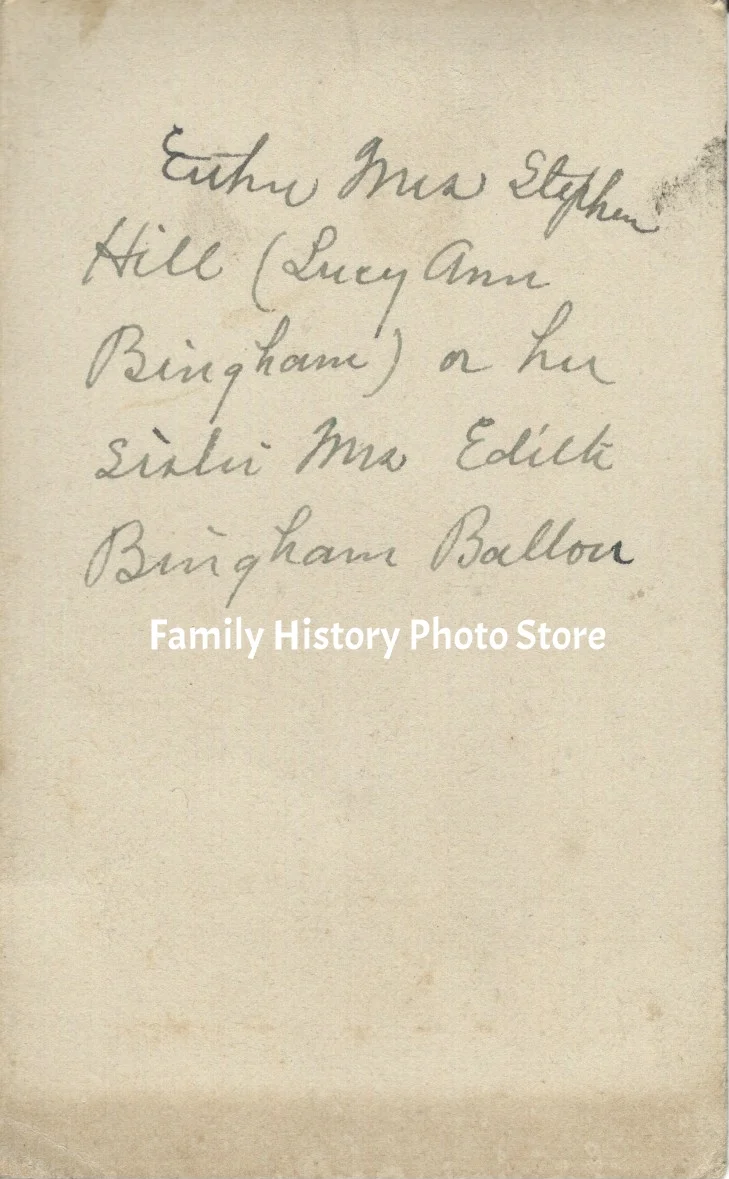 Either Mrs Stephen
Hill (Lucy Ann
Bingham) or her
sister Mrs Edith
Bingham Ballou
Family History Photo Store